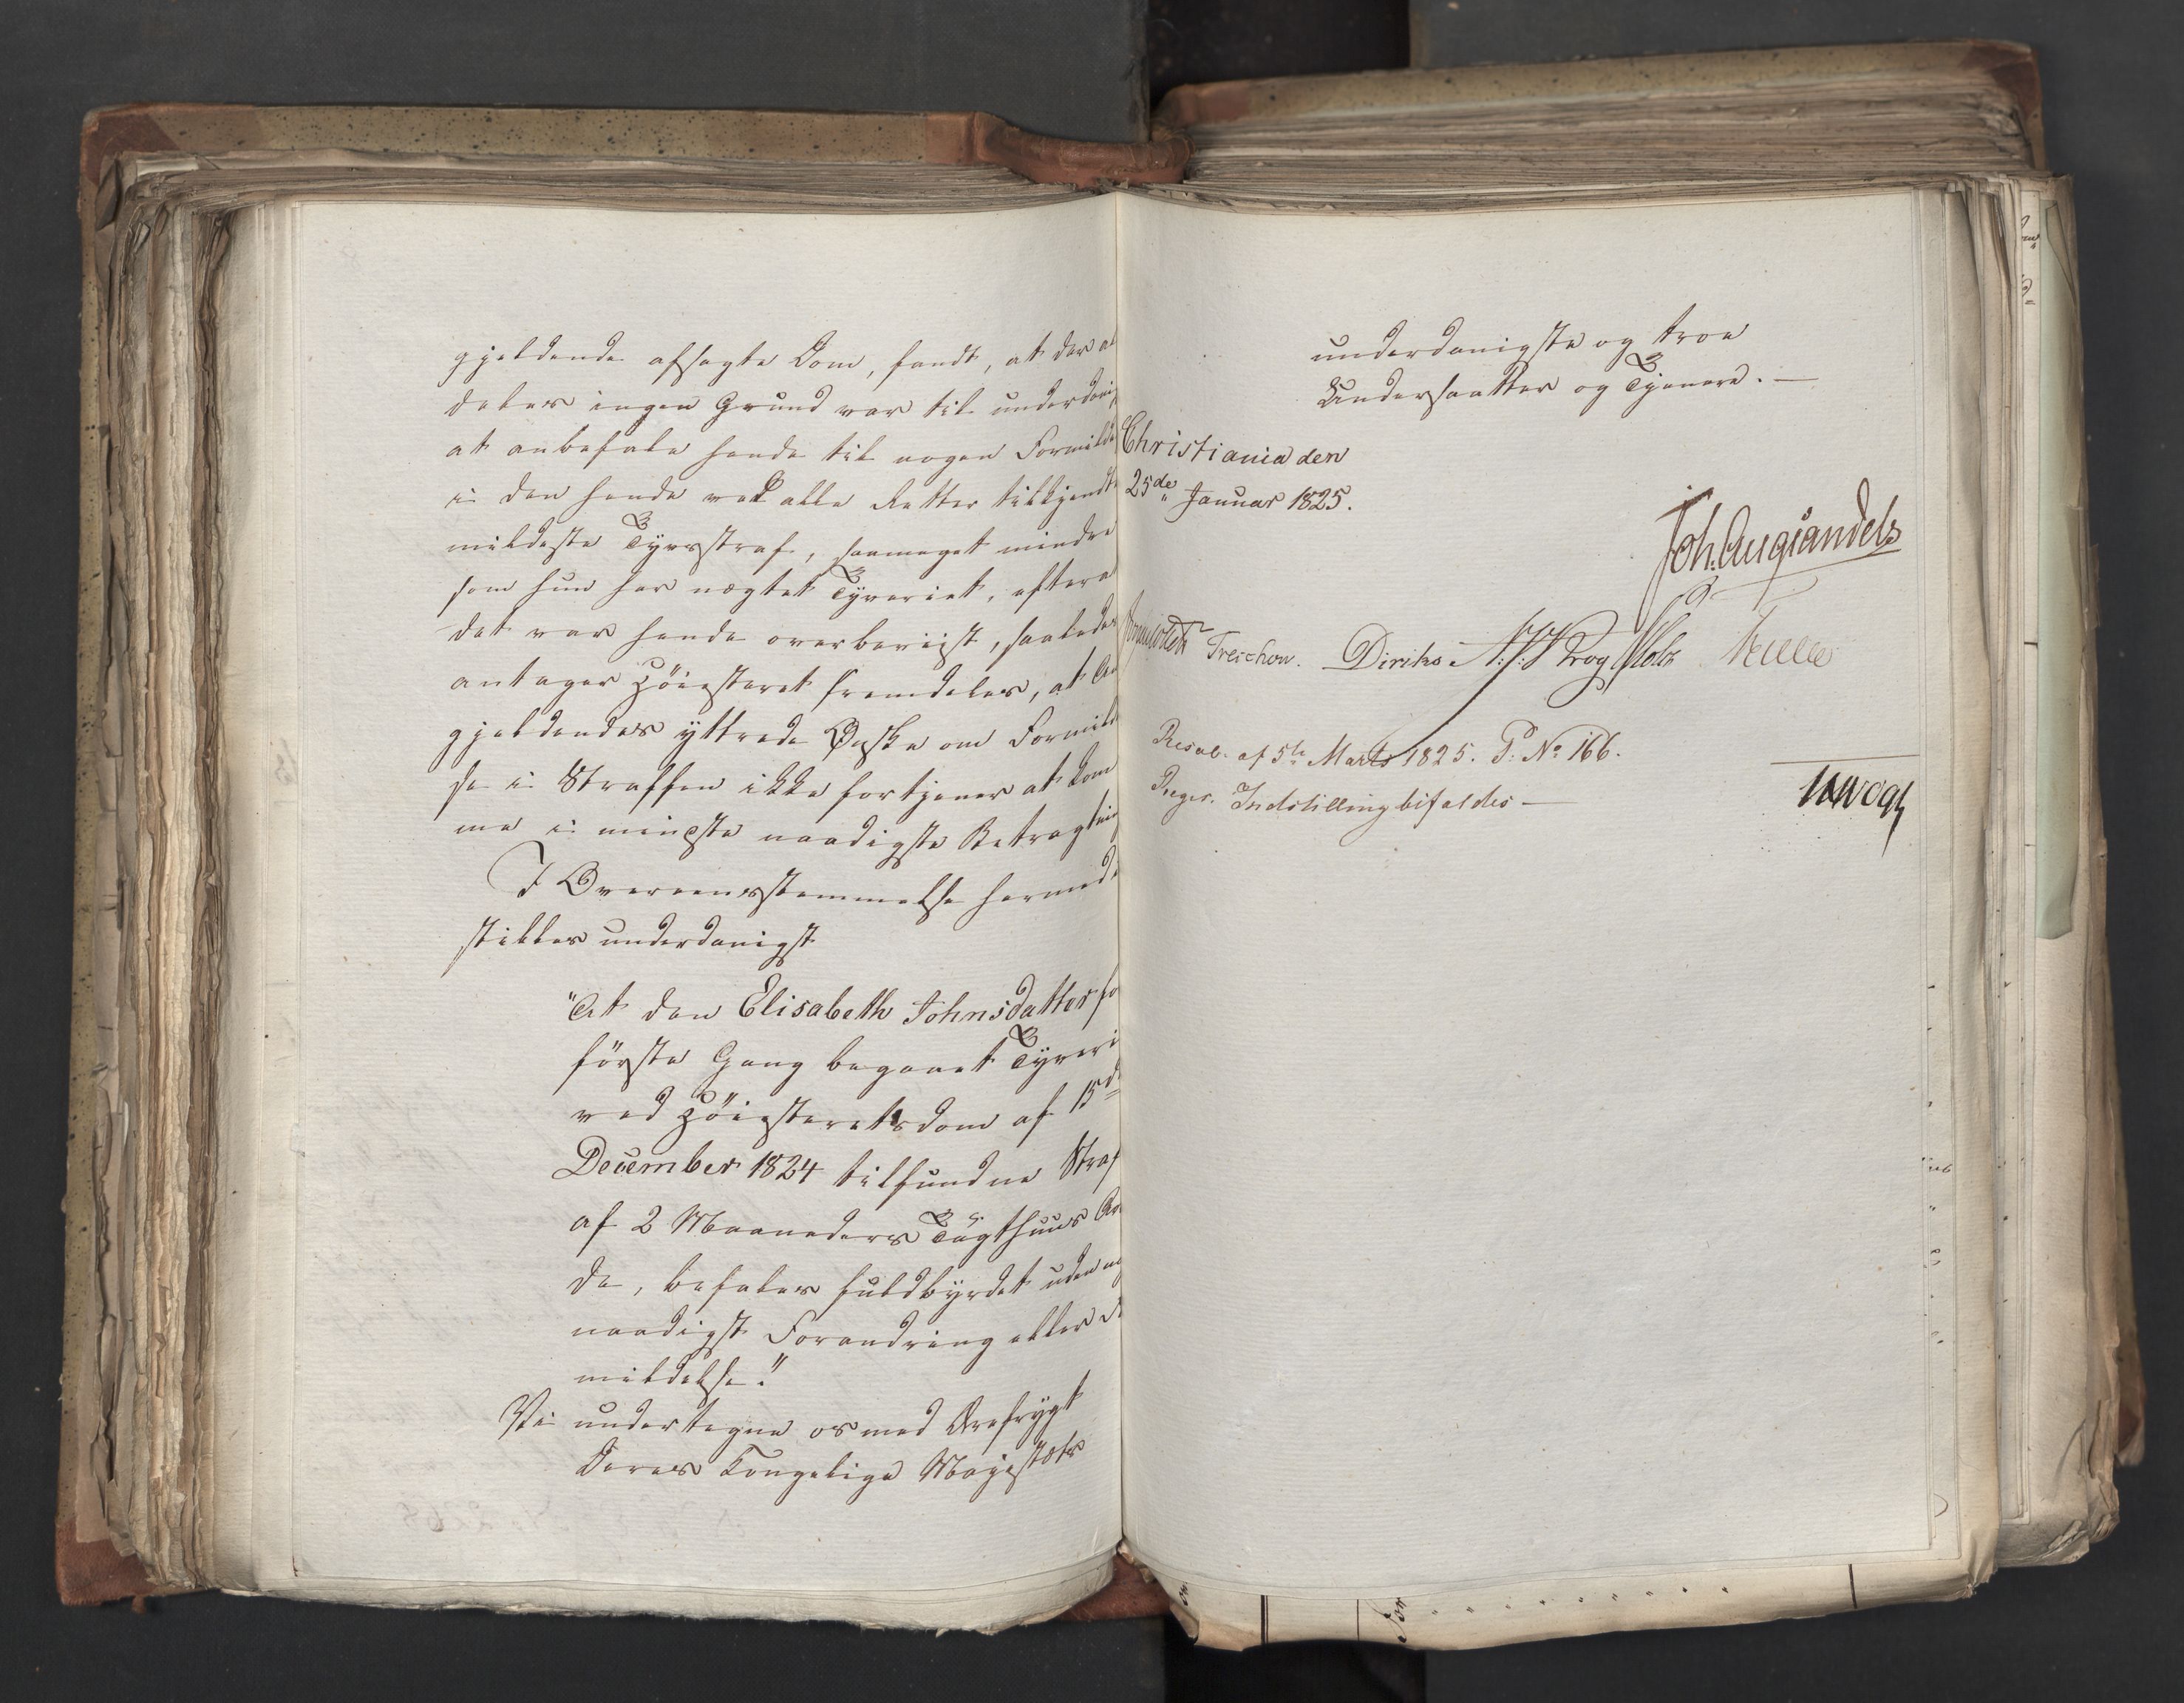 gjeldende afsagte Dom, fandt, at der al
deles ingen Grund var til underdanig
at anbefale hende til nogen Formild
i den hende ved alle Retter tilkjendte
mildeste Tyvsstraf, saameget mindre
som hun har nægtet Tyveriet, efterat
det var hende overbeviist, saaledes
antager Höiesteret fremdeles, at An
gjeldendes yttrede Ønske om Formild
se i Straffen ikke fortjener at kom
me i mindste naadigste Betragtning
I Overeensstemmelse hermed i
stilles underdanigst
"At den Elisabeth Johnsdatter fo
förste Gang begaaet Tyveri
ved Höiesteretsdom af 15de
December 1824 tilfundne Straf
af 2 Maaneders Tugthuus Ar
de, befales fuldbyrdet uden no
naadigst Forandring eller
mildelse."
Vi undertegne os med Ærefrygt
Deres Kongelige Majestæts
underdanigste og troe
Undersaatter og Tjenere. —
Christiania den
25de Januar 1825.
Joh. Aug Sandels
Sommerhielm Treschow. Diriks J: H: Krog Holst
Resol. af 5te Marts 1825. P: No 166.
Reger. Indstilling bifaldes —